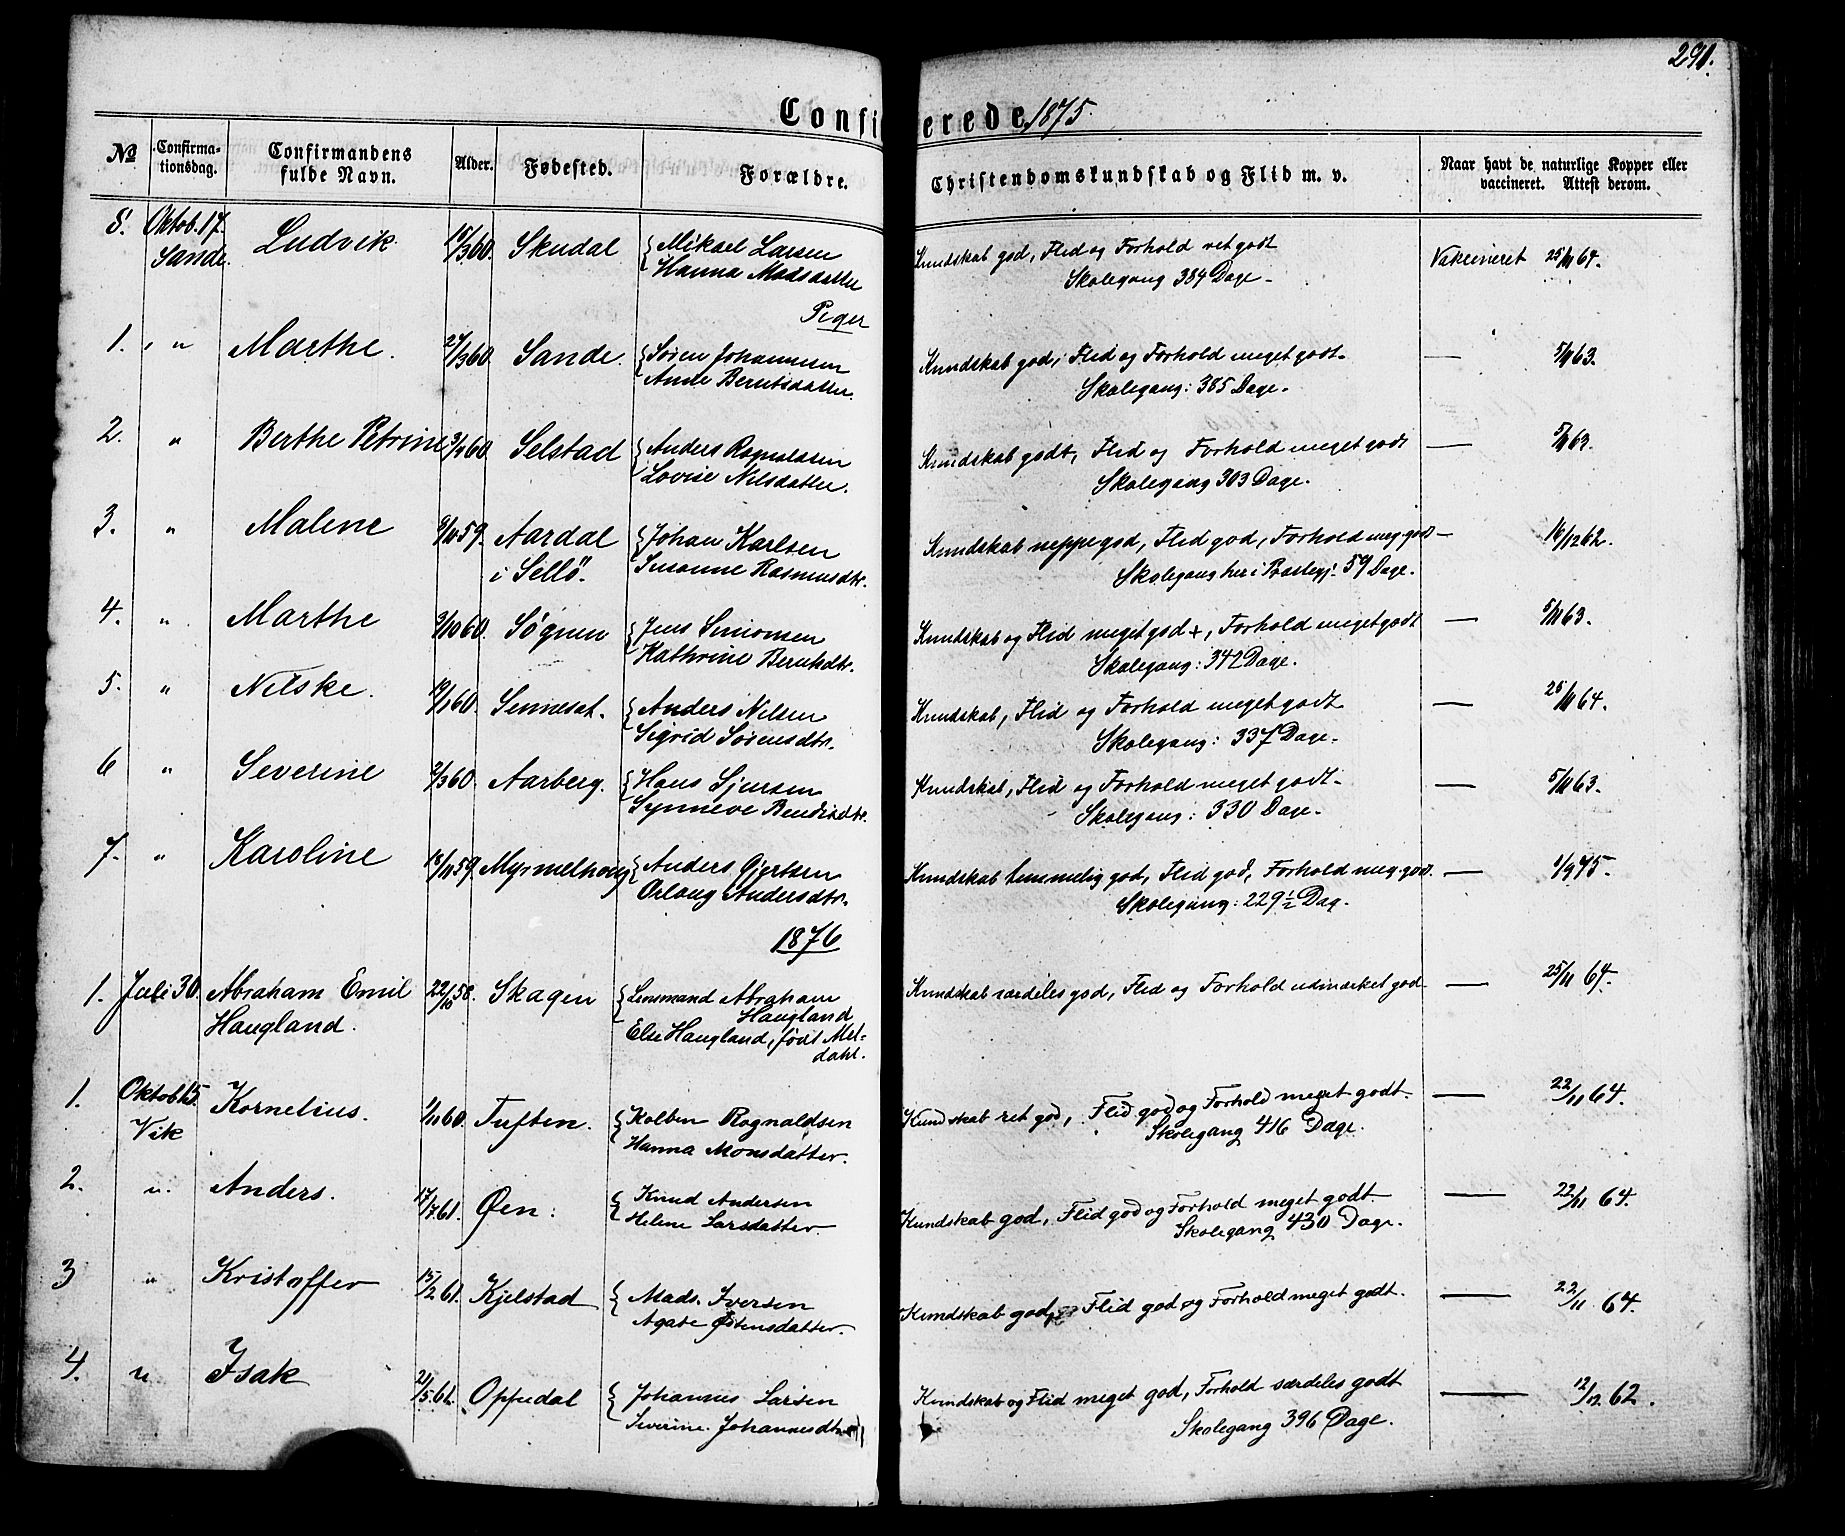 291.
Confi erede 1875.
№ Confirma-tionsdag. Confirmandens fulde Navn. Alder. Fødested. Forældre. Christendomskundskab og Flid m. v. Naar havt de naturlige Kopper eller vaccineret. Attest derom.
8. Oktob. 17. Ludvik 19/3 60. Skudal { Mikael Larsen Kundskab god, Flid og Forhold ret godt Vakcineret 25/11 64.
Sande. Hanna Madsdatter Skolegang 384 Dage.
Piger
1. " " Marthe. 27/3 60. Sande. { Søren Johannesen Kundskab god, Flid og Forhold meget godt. — 5/11 63.
Anne Berntsdatter. Skolegang: 385 Dage.
2. " Berthe Petrine 3/4 60 Selstad { Anders Rognaldsen Kundskab godt, Flid og Forhold meget godt — 5/11 63.
Lovise Nilsdatter. Skolegang 303 Dage.
3. " Malene 9/11 59. Aardal { Johan Karlsen Kundskab neppe god, Flid god, Forhold meg. god — 16/12 62.
i Sellö. Susanne Rasmusdtr. Skolegang her i Præstegj. 59 Dage.
4. " Marthe 3/10 60. Søgnen { Jens Simonsen Kundskab og Flid meget god +, Forhold meget godt — 5/11 63.
Kathrine Berntsdtr. Skolegang: 342 Dage.
5. " Nilske. 19/1 60. Sennesat. { Anders Nilsen Kundskab, Flid og Forhold meget godt — 25/11 64.
Sigrid Sørensdtr. Skolegang: 337 Dage.
6 " Severine 2/3 60. Aarberg. { Hans Sjursen Kundskab, Flid og Forhold meget godt. — 5/11 63.
Synneve Bendixdtr. Skolegang: 330 Dage.
7. " Karoline 18/11 59. Myrmelhoug { Anders Gjertsen Kundskab temmelig god, Flid god, Forhold meg. god. — 1/9 75.
Orlaug Andersdtr. Skolegang: 229 ½ Dag.
1876
1. Juli 30. Abraham Emil 22/10 58. Skagen { Lensmand Abraham Kundskab særdeles god, Flid og Forhold udmærket god. — 25/11 64.
Haugland. Haugland
Else Haugland, født Mel-
dahl.
1. Oktob 15. Kornelius. 1/11 60. Tuften. { Kolben Rognaldsen Kundskab ret god, Flid god og Forhold meget godt. — 22/11 64.
Vik Hanna Monsdatter. Skolegang 416 Dage.
2. " Anders. 17/7 61. Øen. { Knud Andersen Kundskab god, Flid god og Forhold meget godt — 22/11 64.
Helene Larsdatter. Skolegang 430 Dage.
3 " Kristoffer 15/2 61. Kjelstad { Mads Iversen Kundskab god, Flid god og Forhold meget godt. — 22/11 64.
Agate Østensdatter.
4. " Isak 21/5 61. Oppedal { Johannes Larsen Kundskab og Flid meget god, Forhold særdeles godt — 12/12 62.
Severine Johannesdtr. Skolegang 396 Dage.